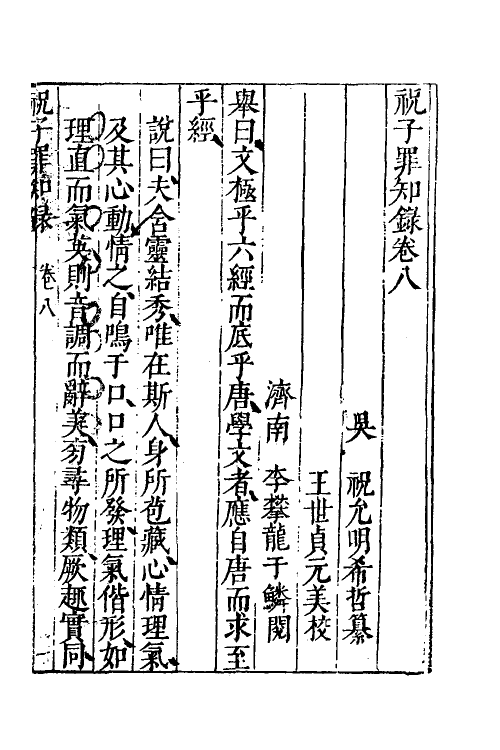 祝子罪知錄卷八
吳　祝允明希哲纂
王世貞元美校
濟南　李攀龍于鱗閱
舉曰文極乎六經而底乎唐學文者應自唐而求至
乎經
說曰夫含靈結秀唯在斯人身所苞藏心情理氣
及其心動情之自鳴于口口之所發理氣偕形如
理直而氣英則音調而辭美芴尋物類厥趣實同
祝子罪知錄　卷八